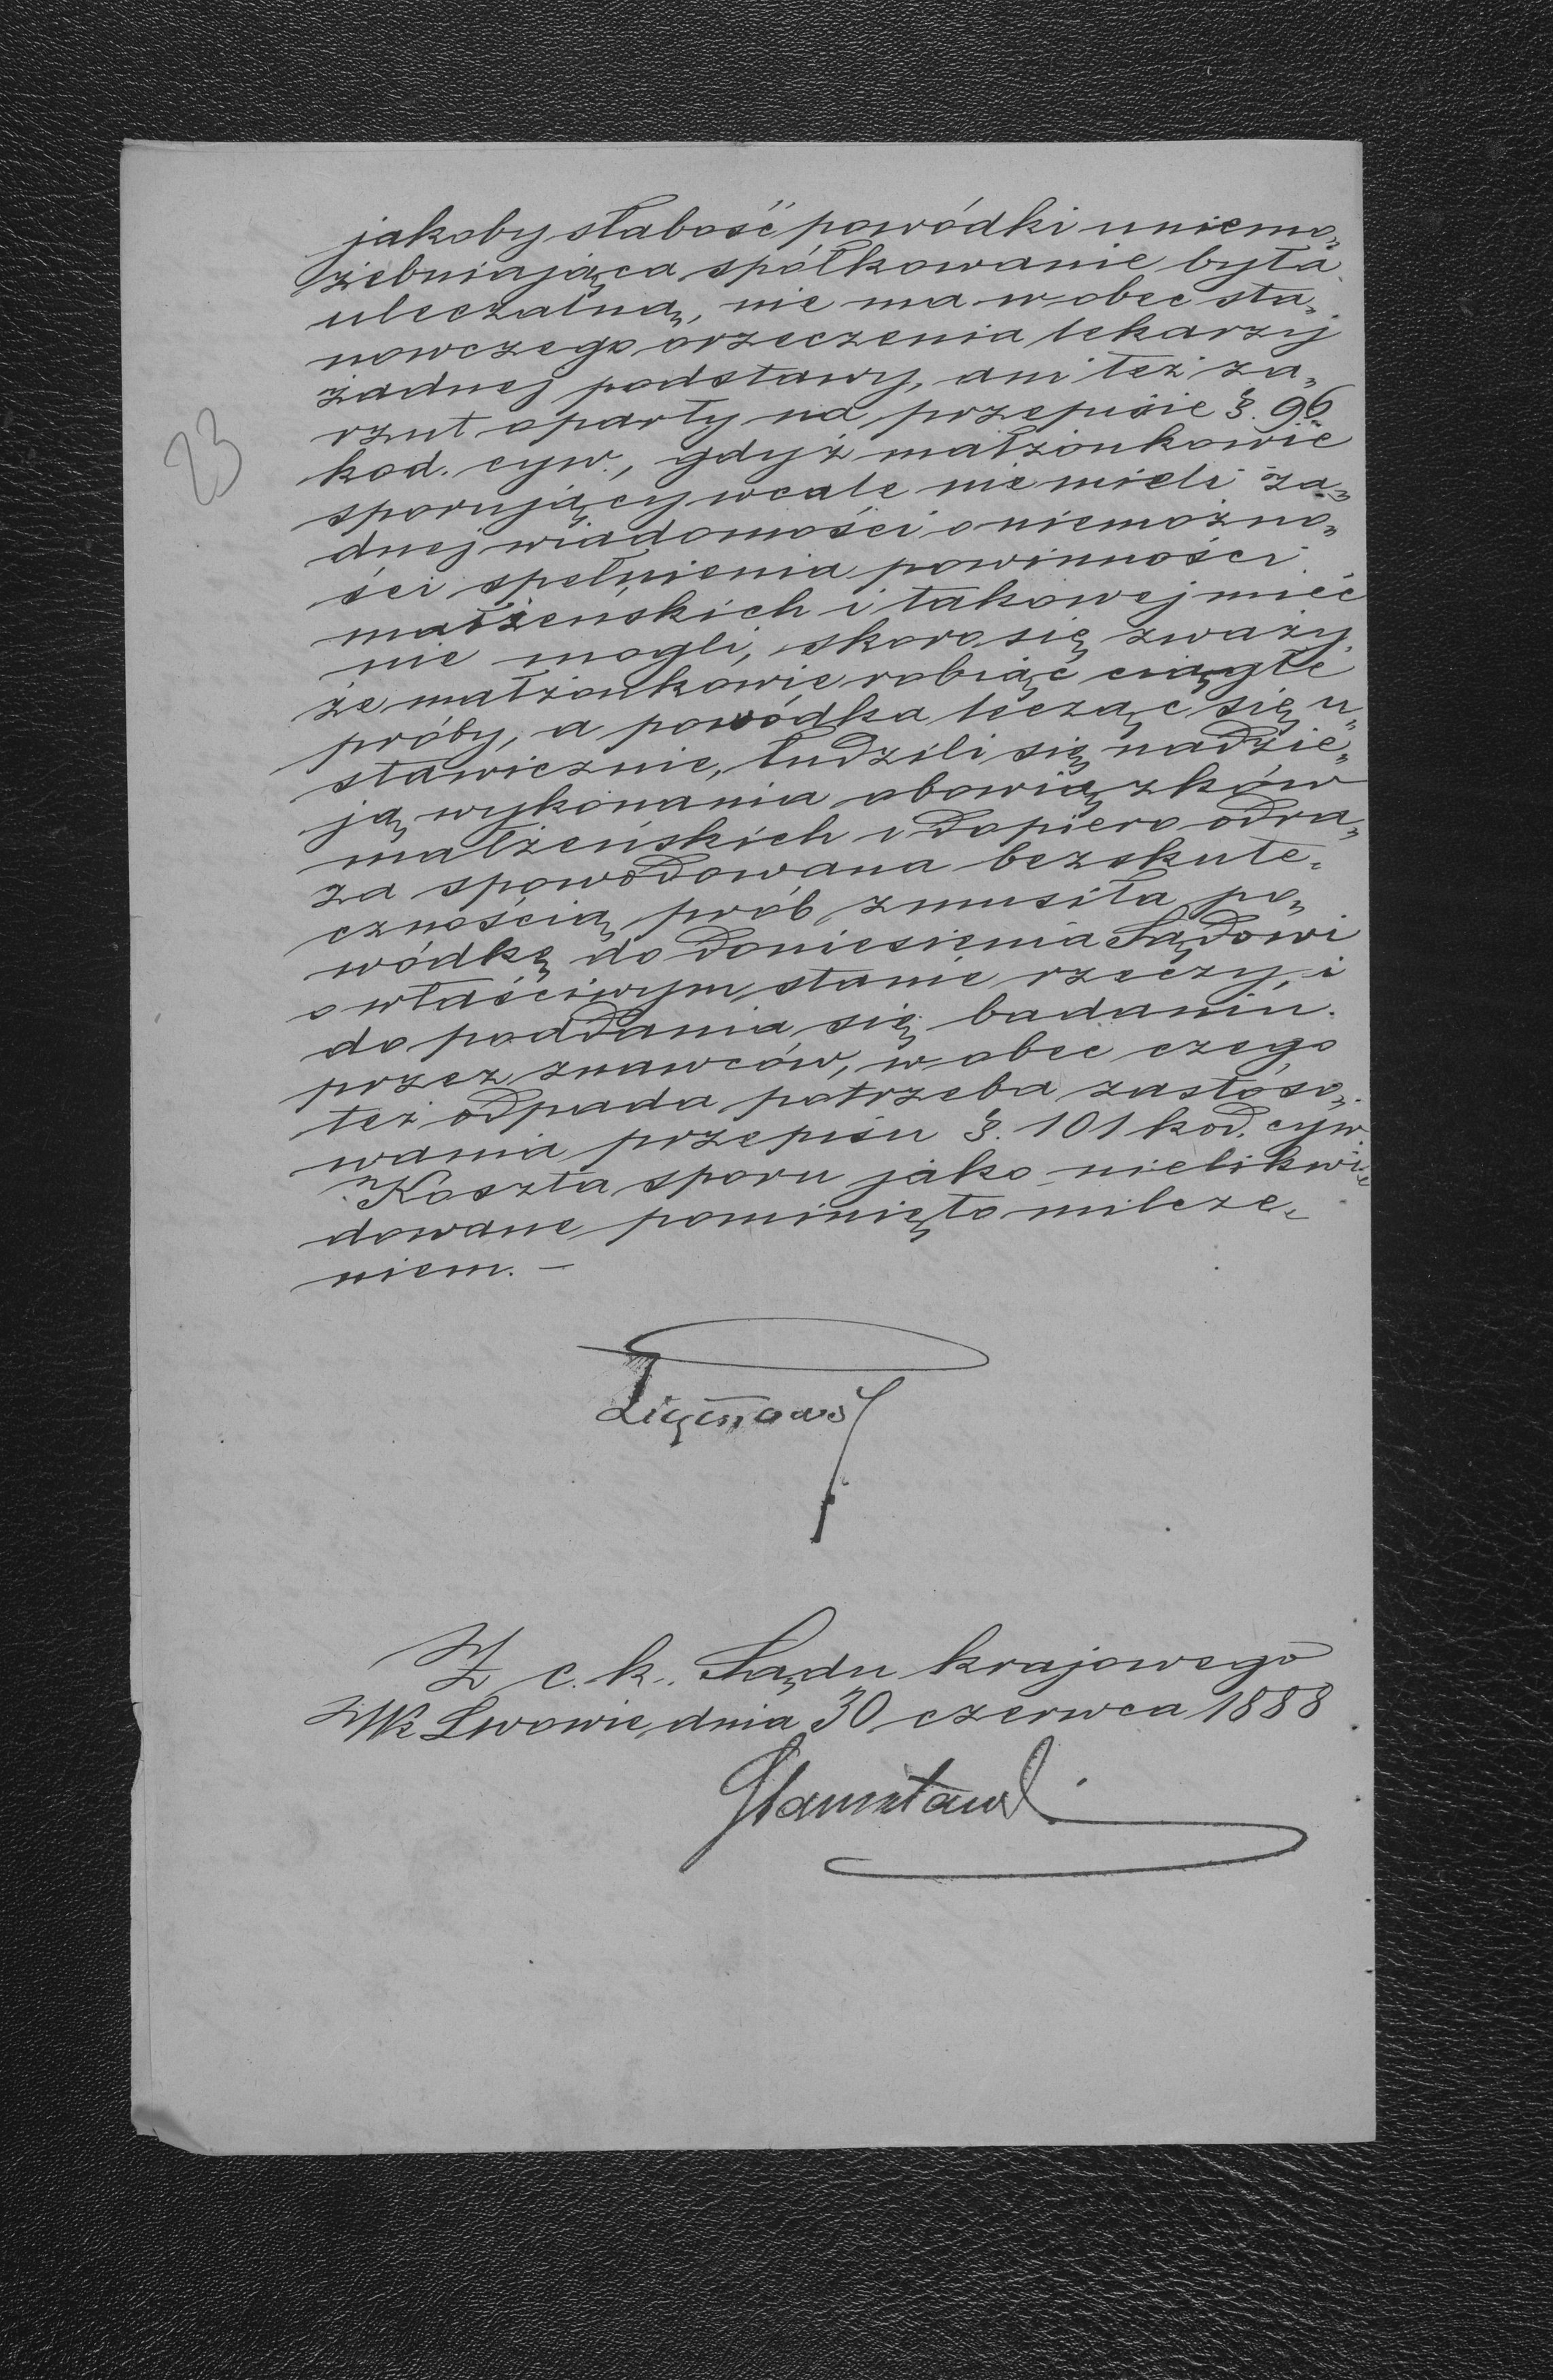 23
jakoby słabość powódki uniemo„
żebniająca spółkowanie była
uleczalną, nie ma wobec sta„
nowczego orzeczenia lekarzy
żadnej podstawy, ani też za„
rzut oparty na przepisie §. 96
kod. cyw., gdyż małżonkowie
sporujący wcale nie mieli ża„
dnej wiadomości o niemożno„
ści spełnienia powinności
małżeńskich i takowej mieć
nie mogli, skoro się zważy,
że małżonkowie robiąc ciągłe
próby, a powódka lecząc się u„
stawicznie, łudzili się nadzie„
ją wykonania obowiązków
małżeńskich i dopiero odra„
za spowodowana bezskute„
cznością prób zmusiła po„
wódkę do doniesienia Sądowi
o właściwym stanie rzeczy, i
do poddania się badaniu
przez znawców, wobec czego
też odpada potrzeba zastóso„
wania przepisu §. 101 kod. cyw.
Koszta sporu jako nielikwi„
dowane pominięto milcze„
niem. –
Z c. k. Sądu krajowego
We Lwowie, dnia 30 czerwca 1888